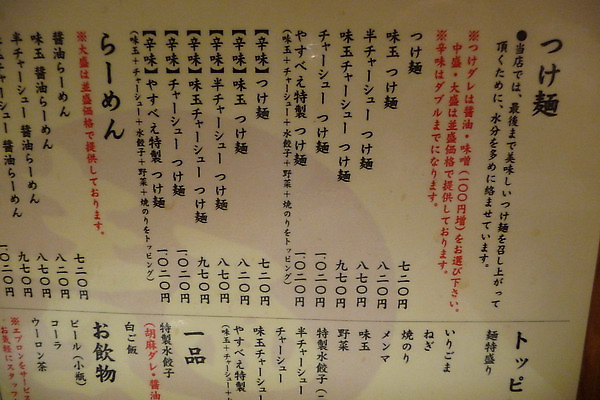 つけ麺
●当店では、最後まで美味しいつけ麺を召し上がって
頂くために、水分を多めに絡ませています。
※つけダレは醤油・味噌(一〇〇円増)をお選び下さい。
中盛・大盛は並盛価格で提供しております。
※辛味はダブルまでになります。
つけ麺 七二〇円
味玉 つけ麺 八二〇円
半チャーシュー つけ麺 八七〇円
味玉チャーシュー つけ麺 九七〇円
チャーシュー つけ麺 一、〇二〇円
やすべえ特製 つけ麺 一、〇二〇円
(味玉+チャーシュー+水餃子+野菜+焼のりをトッピング)
【辛味】つけ麺 七二〇円
【辛味】味玉 つけ麺 八二〇円
【辛味】半チャーシュー つけ麺 八七〇円
【辛味】味玉チャーシュー つけ麺 九七〇円
【辛味】チャーシュー つけ麺 一、〇二〇円
【辛味】やすべえ特製 つけ麺 一、〇二〇円
(味玉+チャーシュー+水餃子+野菜+焼のりをトッピング)
らーめん
※大盛は並盛価格で提供しております。
醤油らーめん 七二〇円
味玉 醤油らーめん 八二〇円
半チャーシュー 醤油らーめん 八七〇円
味玉チャーシュー 醤油らーめん 九七〇円
チャーシュー 醤油らーめん 一、〇二〇円
トッピ
麺特盛り
いりごま
ねぎ
焼のり
メンマ
味玉
野菜
特製水餃子(二
半チャーシュー
チャーシュー
味玉チャーシュー
やすべえ特製
(味玉+チャーシュー+水
一品
特製水餃子
(胡麻ダレ・醤油
白ご飯
お飲物
ビール(小瓶)
コーラ
ウーロン茶
※エプロンをサービス
お気軽にスタッフ